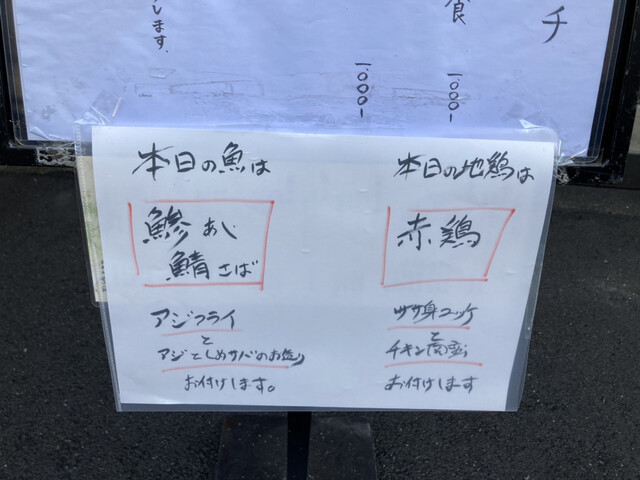 チ
食
1.000-
1.000-
します。
本日の魚は
鯵あじ
鯖さば
アジフライ
と
アジとしめサバのお造り
お付けします。
本日の地鶏は
赤鶏
ササ身コロッケ
と
チキン南蛮
お付けします